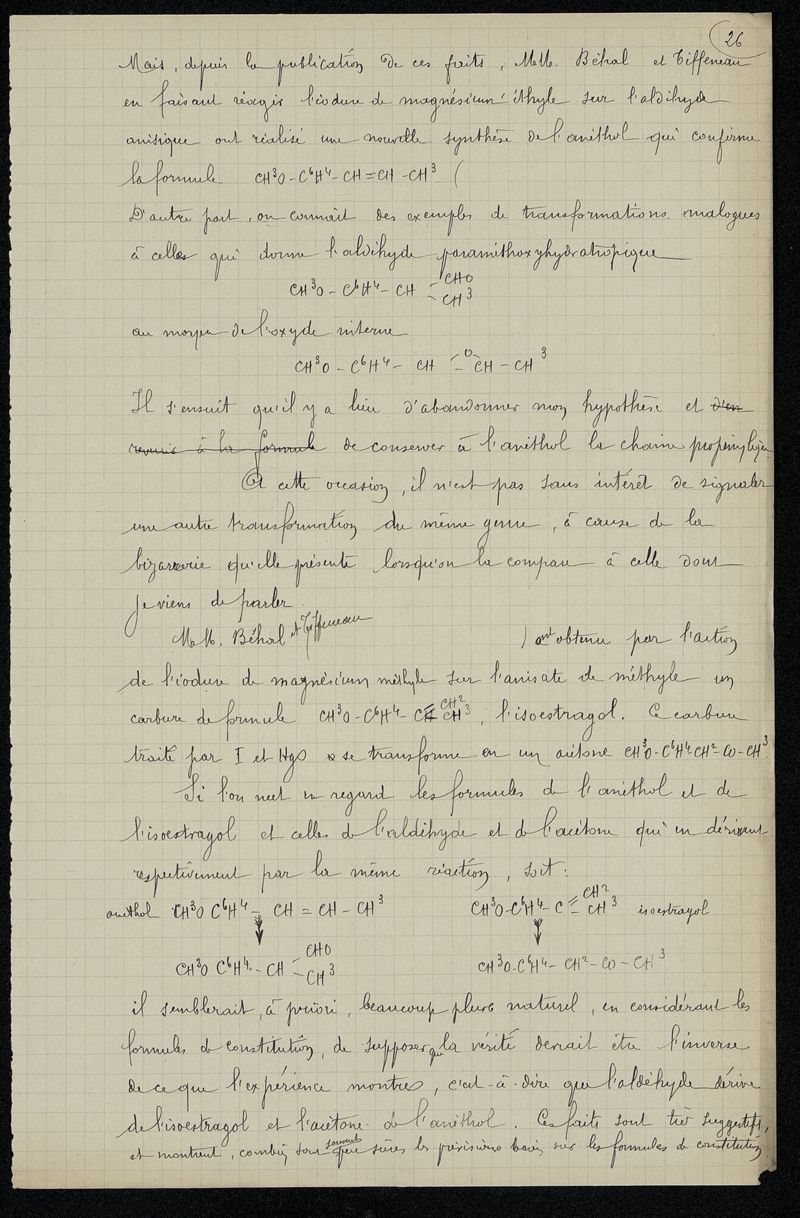 26
Mais, depuis la publication de ces faits, MM. Béhal et Tiffeneau
en faisant réagir l'iodure de magnésium-éthyle sur l'aldéhyde
anisique ont réalisé une nouvelle synthèse de l'anéthol qui confirme
la formule CH³O-C⁶H⁴-CH=CH-CH³ (
D'autre part, on connait des exemples de transformations analogues
à celles qui donne l'aldéhyde paraméthoxyhydratropique
CH³O-C⁶H⁴-CH
CHO
CH³
au moyen de l'oxyde interne
CH³O-C⁶H⁴-CH-O-CH-CH³
Il s'ensuit qu'il y a lieu d'abandonner mon hypothèse et d'en
revenir à la formule de conserver à l'anéthol la chaîne propénylique
A cette occasion, il n'est pas sans intérêt de signaler
une autre transformation du même genre, à cause de la
bizarrerie qu'elle présente lorsqu'on la compare à celle dont
je viens de parler
MM. Béhal et Tiffeneau ) ont obtenu par l'action
de l'iodure de magnésium méthyle sur l'anisate de méthyle un
carbure de formule CH³O-C⁶H⁴-C CH² CH³, l'isoestragol. Ce carbure
traité par I et HgO se transforme en un acétone CH³O-C⁶H⁴-CH²-CO-CH³
Si l'on met en regard les formules de l'anéthol et de
l'isoestragol et celles de l'aldéhyde et de l'acétone qui en dérivent
respectivement par la même réaction, soit:
anéthol CH³O C⁶H⁴-CH=CH-CH³
CH³O-C⁶H⁴-C=CH² CH³ isoestragol
CH³O C⁶H⁴-CH CHO CH³
CH³O-C⁶H⁴-CH²-CO-CH³
il semblerait, à priori, beaucoup plus naturel, en considérant les
formules de constitution, de supposer que la vérité devrait être l'inverse
de ce que l'expérience montre, c'est-à-dire que l'aldéhyde dérive
de l'isoestragol et l'acétone de l'anéthol. Ces faits sont très suggestifs,
et montrent, combien sont souvent peu sûres les prévisions basées sur les formules de constitution